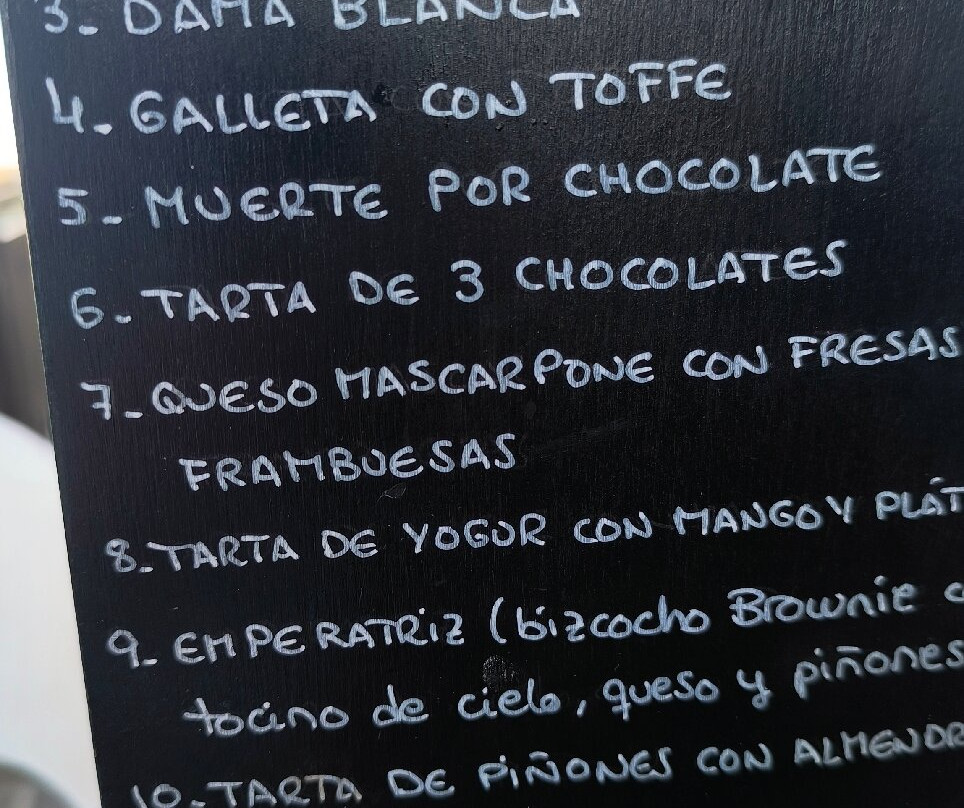 3- DAMA BLANCA
4- GALLETA CON TOFFE
5- MUERTE POR CHOCOLATE
6- TARTA DE 3 CHOCOLATES
7- QUESO MASCARPONE CON FRESAS
FRAMBUESAS
8- TARTA DE YOGUR CON MANGO Y PLÁT
9- EMPERATRIZ (bizcocho Brownie c
tocino de cielo, queso y piñones
10- TARTA DE PIÑONES CON ALMENDR